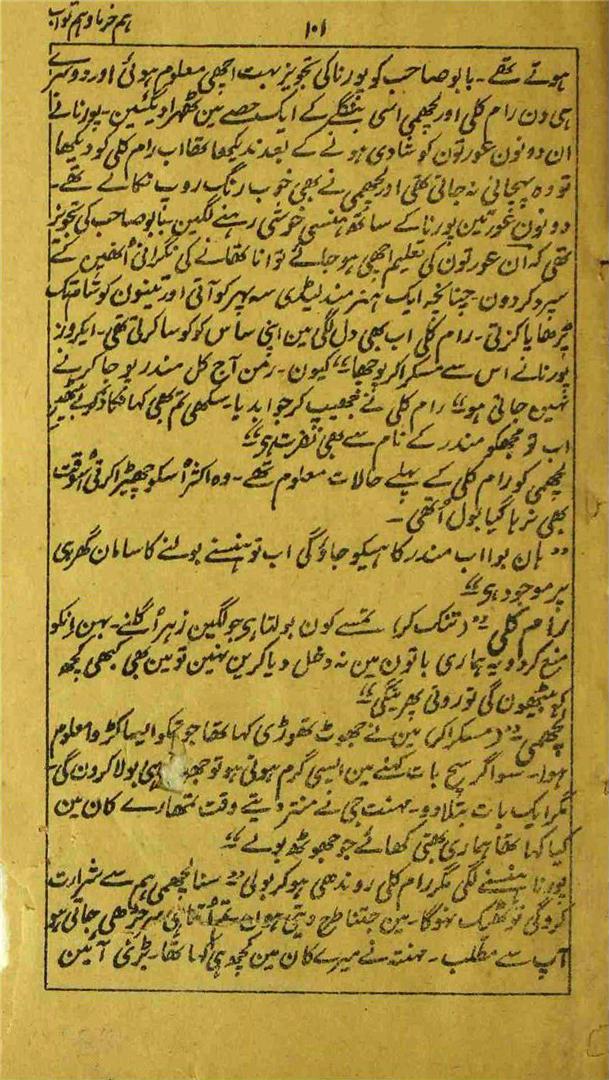 ہم خرما و ہم ثواب
۱۰۱
ہوتے تھے۔ بابو صاحب کو پورنا کی تجویز بہت اچھی معلوم ہوئی اور دوسرے
ہی دن رام کلی اور لچھمی اسی بنگلے کے ایک حصے مین ٹھہرا دیگئین۔ پورنا نے
ان دونون عورتون کو شادی ہونے کے بعد نہ دیکھا تھا اب رام کلی کو دیکھا
تو وہ پہچانی نہ جاتی تھی اور لچھمی نے بھی خوب رنگ روپ نکالے تھے۔
دونون عورتین پورنا کے ساتھ ہنسی خوشی رہنے لگین بابو صاحب کی تجویز
تھی کہ ان عورتون کی تعلیم اچھی ہو جائے تو اناتھالے کی نگرانی انھین کے
سپرد کر دون۔ چنانچہ ایک ہنرمند لیڈی سہ پہر کو آتی اور تینون کو شام تک
پڑھایا کرتی۔ رام کلی اب بھی دل لگی مین اپنی ساس کو کوسا کرتی تھی۔ ایکروز
پورنا نے اس سے مسکرا کر پوچھا “ کیون۔ رمن آج کل مندر پوجا کرنے
نہین جاتی ہو “ رام کلی نے جھیپ کر جواب دیا۔ سکھی تم بھی کہا نکا ذکر لے بیٹھین
اب تو مجھکو مندر کے نام سے بھی نفرت ہی “
لچھمی کو رام کلی کے پہلے حالات معلوم تھے۔ وہ اکثر اسکو چھیڑا کرتی اُسوقت
بھی نہ رہا گیا بول اُٹھی۔
“ ہان بوا اب مندر کا ہیکو جاؤگی اب تو ہنسنے بولنے کا سامان گھر ہی
پر موجود ہی “
رام کلی “ (تنک کر) تمسے کون بولتا ہی جو لگین زہر اُگلنے۔ بہن انکو
منع کردو یہ ہماری باتون مین نہ دخل دیا کرین نہین تو مین بھی کبھی کچھ
کہہ بیٹھون گی تو روتی پھرینگی “
لچھمی “ (مسکرا کر) مین نے جھوٹ تھوڑی کہا تھا جو تمکو ایسا کڑوا معلوم
ہوا۔ سو اگر سچ بات کہنے مین ایسی گرم ہوتی ہو تو جھوٹ ہی بولا کرون گی۔
مگر ایک بات بتلا دو۔ مہنت جی نے منتر دیتے وقت تمھارے کان مین
کیا کہا تھا ہماری بھتی کھائے جو جھوٹھ بولے “
پورنا ہنسنے لگی مگر رام کلی روندھی ہو کر بولی “ سنا لچھمی ہم سے شرارت
کرو گی تو ٹھیک نہوگا۔ مین جتنا طرح دیتی ہون تم اُتنا ہی سر چڑھی جاتی ہو
آپ سے مطلب۔ مہنت نے میرے کان مین کچھ ہی کہا تھا۔ بڑی آئین